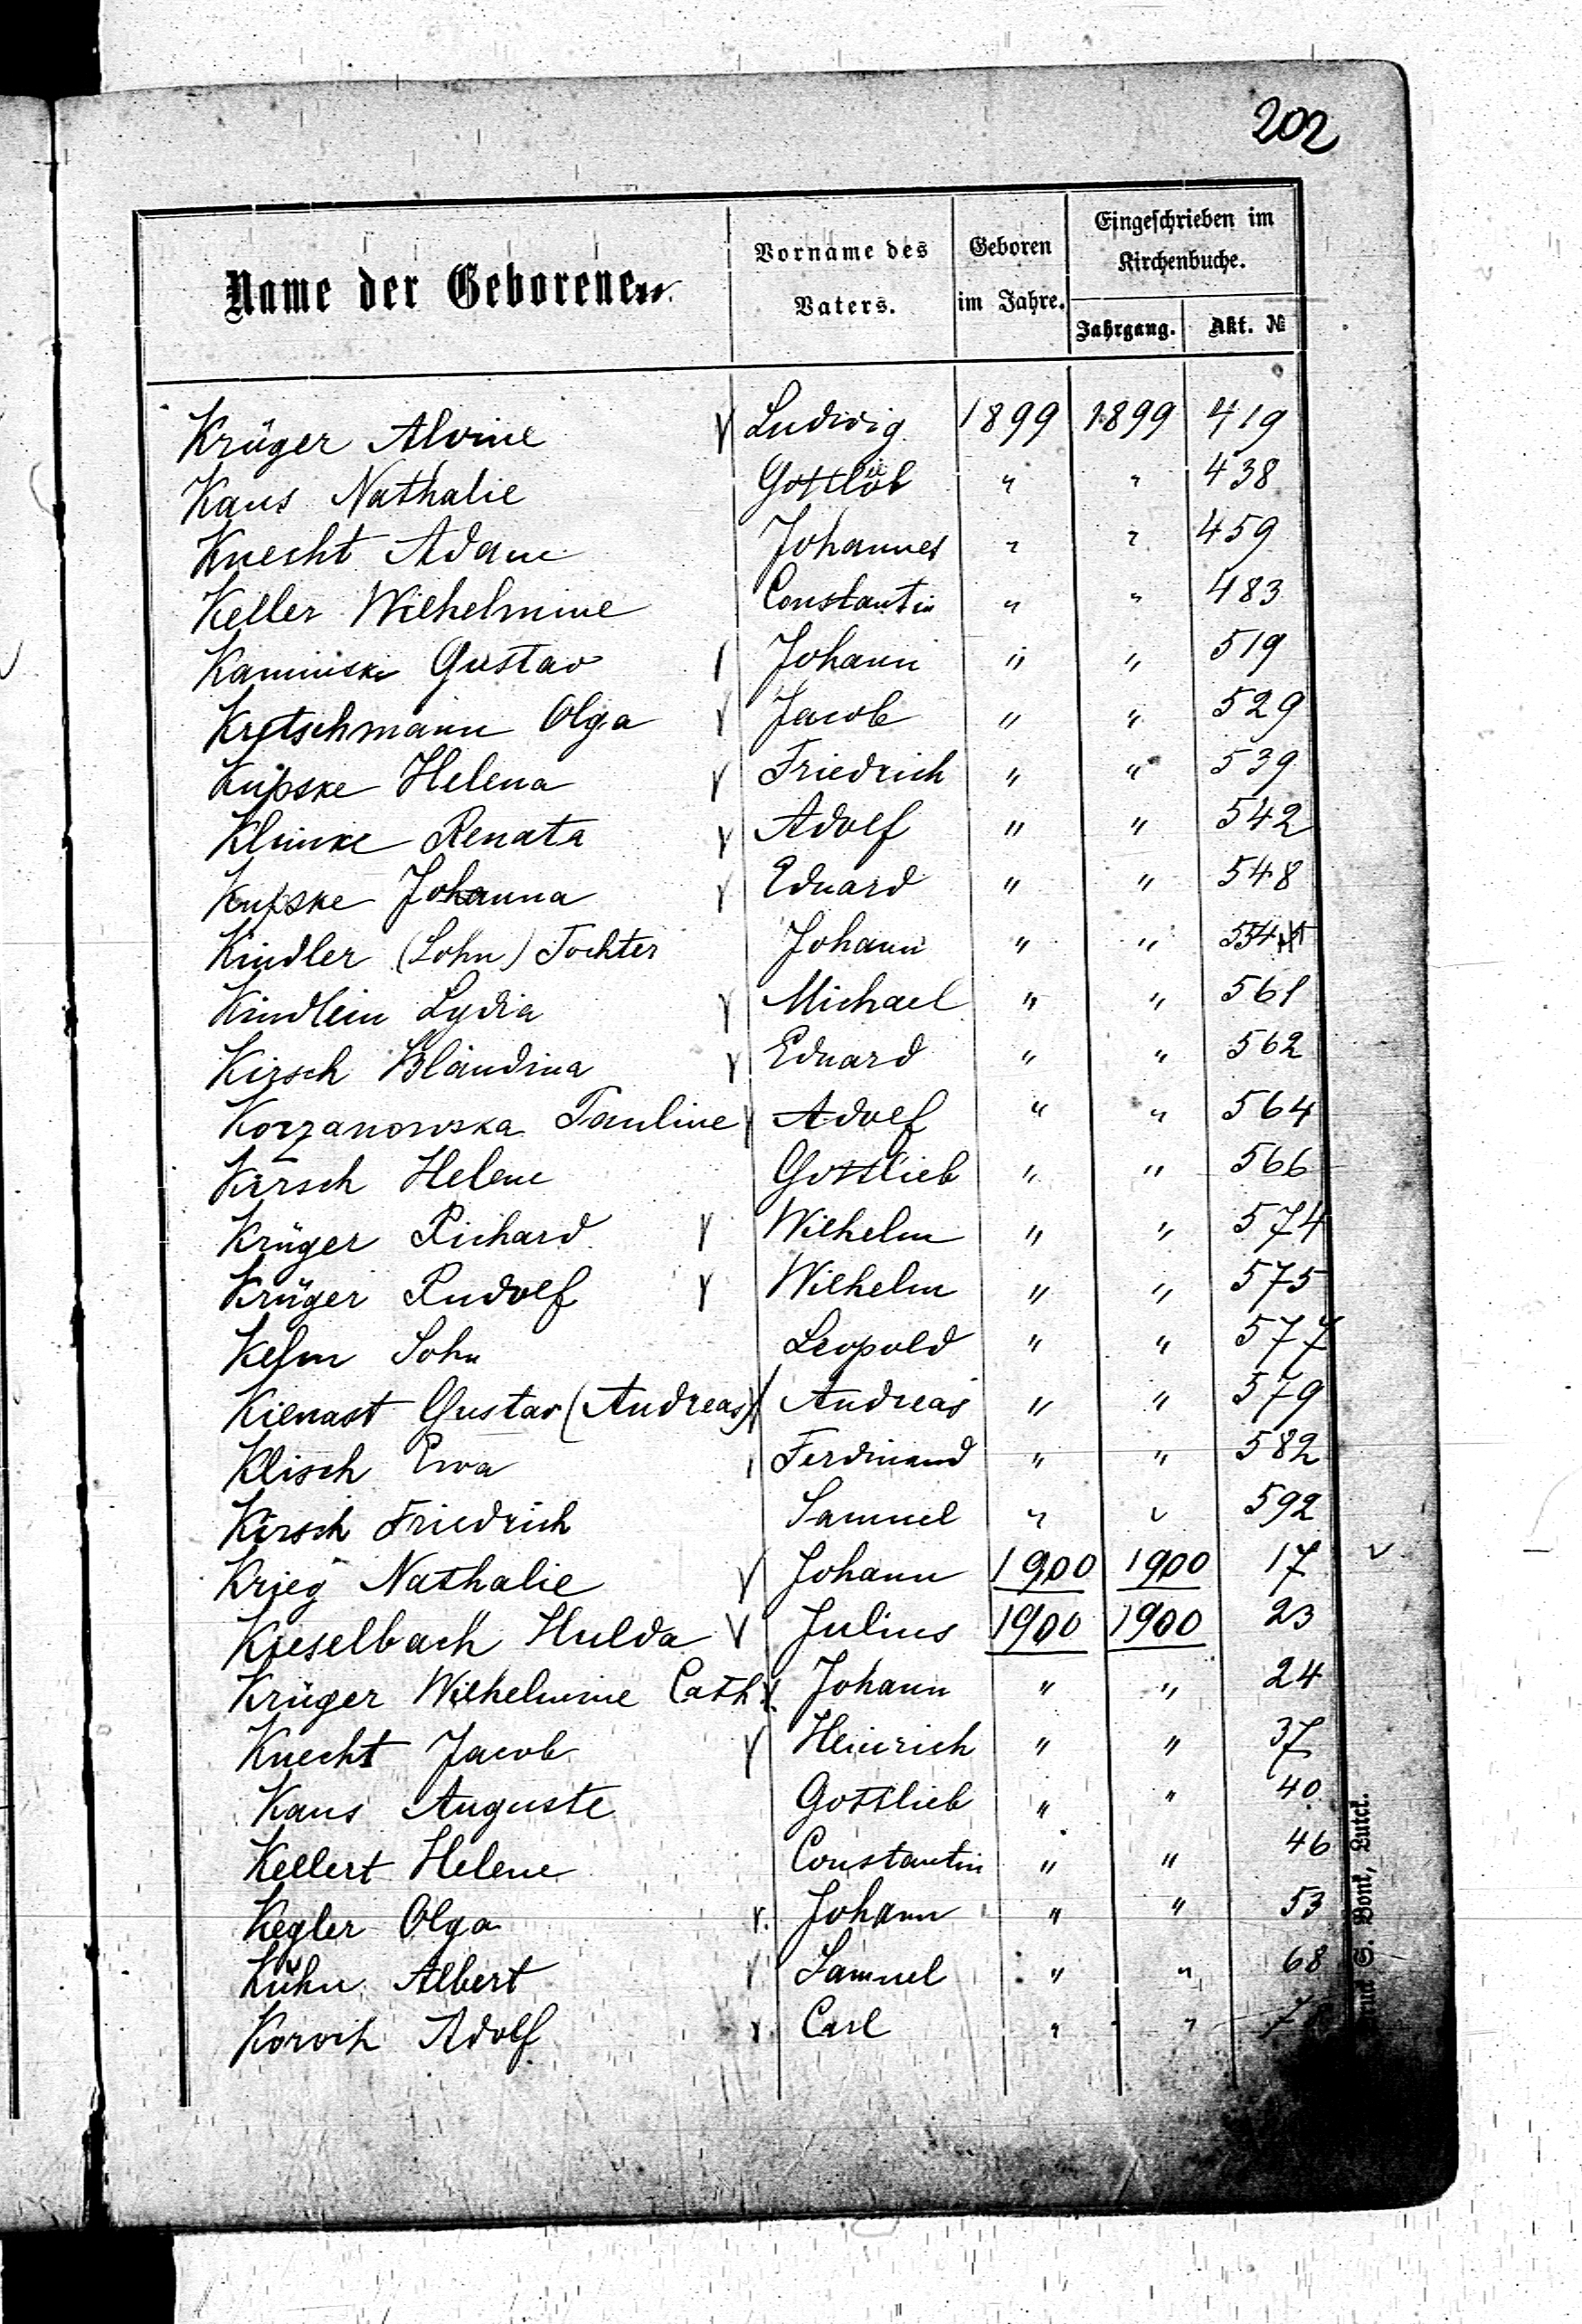 202
Name der Geborenen. Vorname des Vaters. Geboren im Jahre. Eingeschrieben im Kirchenbuche.
Jahrgang. Akt. №
Krüger Alvine Ludwig 1899 1899 419
Kaus Nathalie Gottlieb " " 438
Knecht Adam Johannes " " 459
Keller Wilhelmine Constantin " " 483
Kaminski Gustav Johann " " 519
Kretschmann Olga Jacob " " 529
Kupske Helena Friedrich " " 539
Klimke Renata Adolf " " 542
Kupske Johanna Eduard " " 548
Kindler (Sohn) Tochter Johann " " 554
Kindlein Lydia Michael " " 561
Kirsch Blandina Eduard " " 562
Korzanowska Pauline Adolf " " 564
Kirsch Helene Gottlieb " " 566
Krüger Richard Wilhelm " " 574
Krüger Rudolf Wilhelm " " 575
Kelm Sohn Leopold " " 577
Kienast Gustav (Andreas) Andreas " " 579
Klisch Ewa Ferdinand " " 582
Kirsch Friedrich Samuel " " 592
Krieg Nathalie Johann 1900 1900 17
Kieselbach Hulda Julius 1900 1900 23
Krüger Wilhelmine Cath. Johann " " 24
Knecht Jacob Heinrich " " 37
Kaus Auguste Gottlieb " " 40
Kellert Helene Constantin " " 46
Kegler Olga Johann " " 53
Kühn Albert Samuel " " 68
Koroch Adolf Carl " "
S. Bonk, Luck.